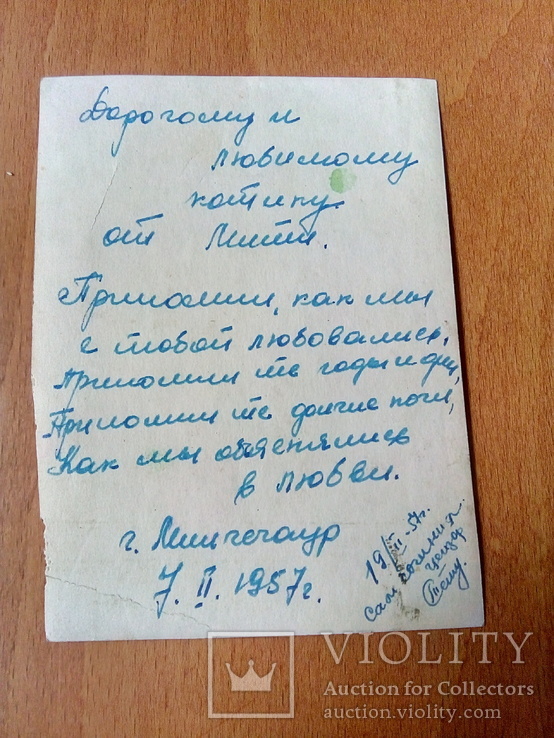 Дорогому и
любимому
котику
от Мити.
Припомни, как мы
с тобой любовались,
Припомни те годы и дни,
Припомни те долгие ночи,
Как мы объяснялись
в любви.
г. Мингечаур
7. II. 1957 г.
19/III-57г.
VIOLITY
Auction for Collectors
auction.violity.com